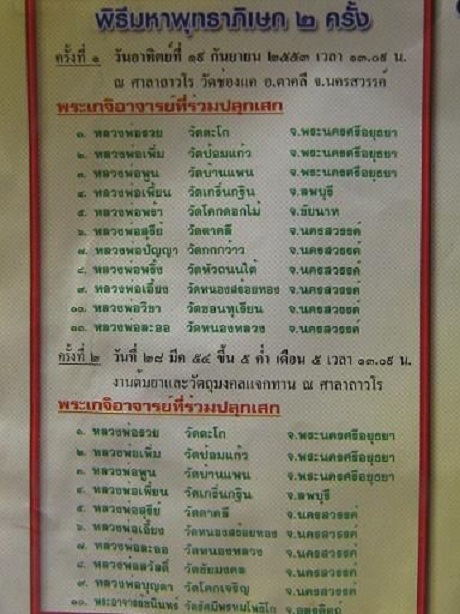 พิธีมหาพุทธาภิเษก ๒ ครั้ง
ครั้งที่ ๑ วันอาทิตย์ที่ ๑๙ กันยายน ๒๕๕๓ เวลา ๑๓.๐๙ น.
ณ ศาลาถาวโร วัดช่องแค อ.ตาคลี จ.นครสวรรค์
พระเกจิอาจารย์ที่ร่วมปลุกเสก
๑. หลวงพ่อรวย วัดตะโก จ.พระนครศรีอยุธยา
๒. หลวงพ่อเพิ่ม วัดป้อมแก้ว จ.พระนครศรีอยุธยา
๓. หลวงพ่อพูน วัดบ้านแพน จ.พระนครศรีอยุธยา
๔. หลวงพ่อเพี้ยน วัดเกริ่นกฐิน จ.ลพบุรี
๕. หลวงพ่อพร้า วัดโคกดอกไม้ จ.ชัยนาท
๖. หลวงพ่อสุรีย์ วัดตาคลี จ.นครสวรรค์
๗. หลวงพ่อปัญญา วัดกกกว้าว จ.นครสวรรค์
๘. หลวงพ่อพริ้ง วัดหัวถนนใต้ จ.นครสวรรค์
๙. หลวงพ่อเอี้ยง วัดหนองสร้อยทอง จ.นครสวรรค์
๑๐. หลวงพ่อวิชา วัดชอนทุเรียน จ.นครสวรรค์
๑๑. หลวงพ่อละออ วัดหนองหลวง จ.นครสวรรค์
ครั้งที่ ๒ วันที่ ๒๘ มีค ๕๔ ขึ้น ๕ ค่ำ เดือน ๕ เวลา ๑๓.๐๙ น.
งานต้มยาและวัตถุมงคลแจกทาน ณ ศาลาถาวโร
พระเกจิอาจารย์ที่ร่วมปลุกเสก
๑. หลวงพ่อรวย วัดตะโก จ.พระนครศรีอยุธยา
๒. หลวงพ่อเพิ่ม วัดป้อมแก้ว จ.พระนครศรีอยุธยา
๓. หลวงพ่อพูน วัดบ้านแพน จ.พระนครศรีอยุธยา
๔. หลวงพ่อเพี้ยน วัดเกริ่นกฐิน จ.ลพบุรี
๕. หลวงพ่อสุรีย์ วัดตาคลี จ.นครสวรรค์
๖. หลวงพ่อเอี้ยง วัดหนองสร้อยทอง จ.นครสวรรค์
๗. หลวงพ่อละออ วัดหนองหลวง จ.นครสวรรค์
๘. หลวงพ่อสวัสดิ์ วัดชัยมงคล จ.นครสวรรค์
๙. หลวงพ่อบุญตา วัดโคกเจริญ จ.นครสวรรค์
๑๐.